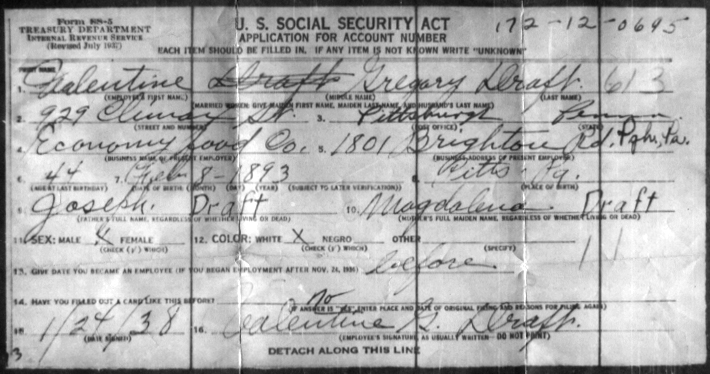 Form SS-5
TREASURY DEPARTMENT
INTERNAL REVENUE SERVICE
(Revised July 1937)
U. S. SOCIAL SECURITY ACT
APPLICATION FOR ACCOUNT NUMBER
172-12-0695
EACH ITEM SHOULD BE FILLED IN. IF ANY ITEM IS NOT KNOWN WRITE "UNKNOWN"
PRINT NAME
1. Valentine Draft Gregory Draft. 613
(EMPLOYEE'S FIRST NAME) (MIDDLE NAME) (LAST NAME)
(MARRIED WOMEN: GIVE MAIDEN FIRST NAME, MAIDEN LAST NAME, AND HUSBAND'S LAST NAME)
2. 929 Climax St. 3. Pittsburgh Penna
(STREET AND NUMBER) (POST OFFICE) (STATE)
4. Economy Food Co. 5. 1801 Brighton Rd. Pgh, Pa.
(BUSINESS NAME OF PRESENT EMPLOYER) (BUSINESS ADDRESS OF PRESENT EMPLOYER)
6. 44 7. 8-1893 8. Pitts. Pa.
(AGE AT LAST BIRTHDAY) (DATE OF BIRTH: (MONTH) (DAY) (YEAR) (SUBJECT TO LATER VERIFICATION) (PLACE OF BIRTH)
9. Joseph. Draft 10. Magdalena Draft
(FATHER'S FULL NAME, REGARDLESS OF WHETHER LIVING OR DEAD) (MOTHER'S FULL MAIDEN NAME, REGARDLESS OF WHETHER LIVING OR DEAD)
11. SEX: MALE X FEMALE 12. COLOR: WHITE X NEGRO OTHER
(CHECK (✓) WHICH) (CHECK (✓) WHICH) (SPECIFY)
13. GIVE DATE YOU BECAME AN EMPLOYEE (IF YOU BEGAN EMPLOYMENT AFTER NOV. 24, 1936) before
14. HAVE YOU FILLED OUT A CARD LIKE THIS BEFORE? no
(IF ANSWER IS "YES" ENTER PLACE AND DATE OF ORIGINAL FILING AND REASONS FOR FILING AGAIN)
15. 1/24/38 16. Valentine G. Draft.
(DATE SIGNED) (EMPLOYEE'S SIGNATURE, AS USUALLY WRITTEN—DO NOT PRINT)
DETACH ALONG THIS LINE